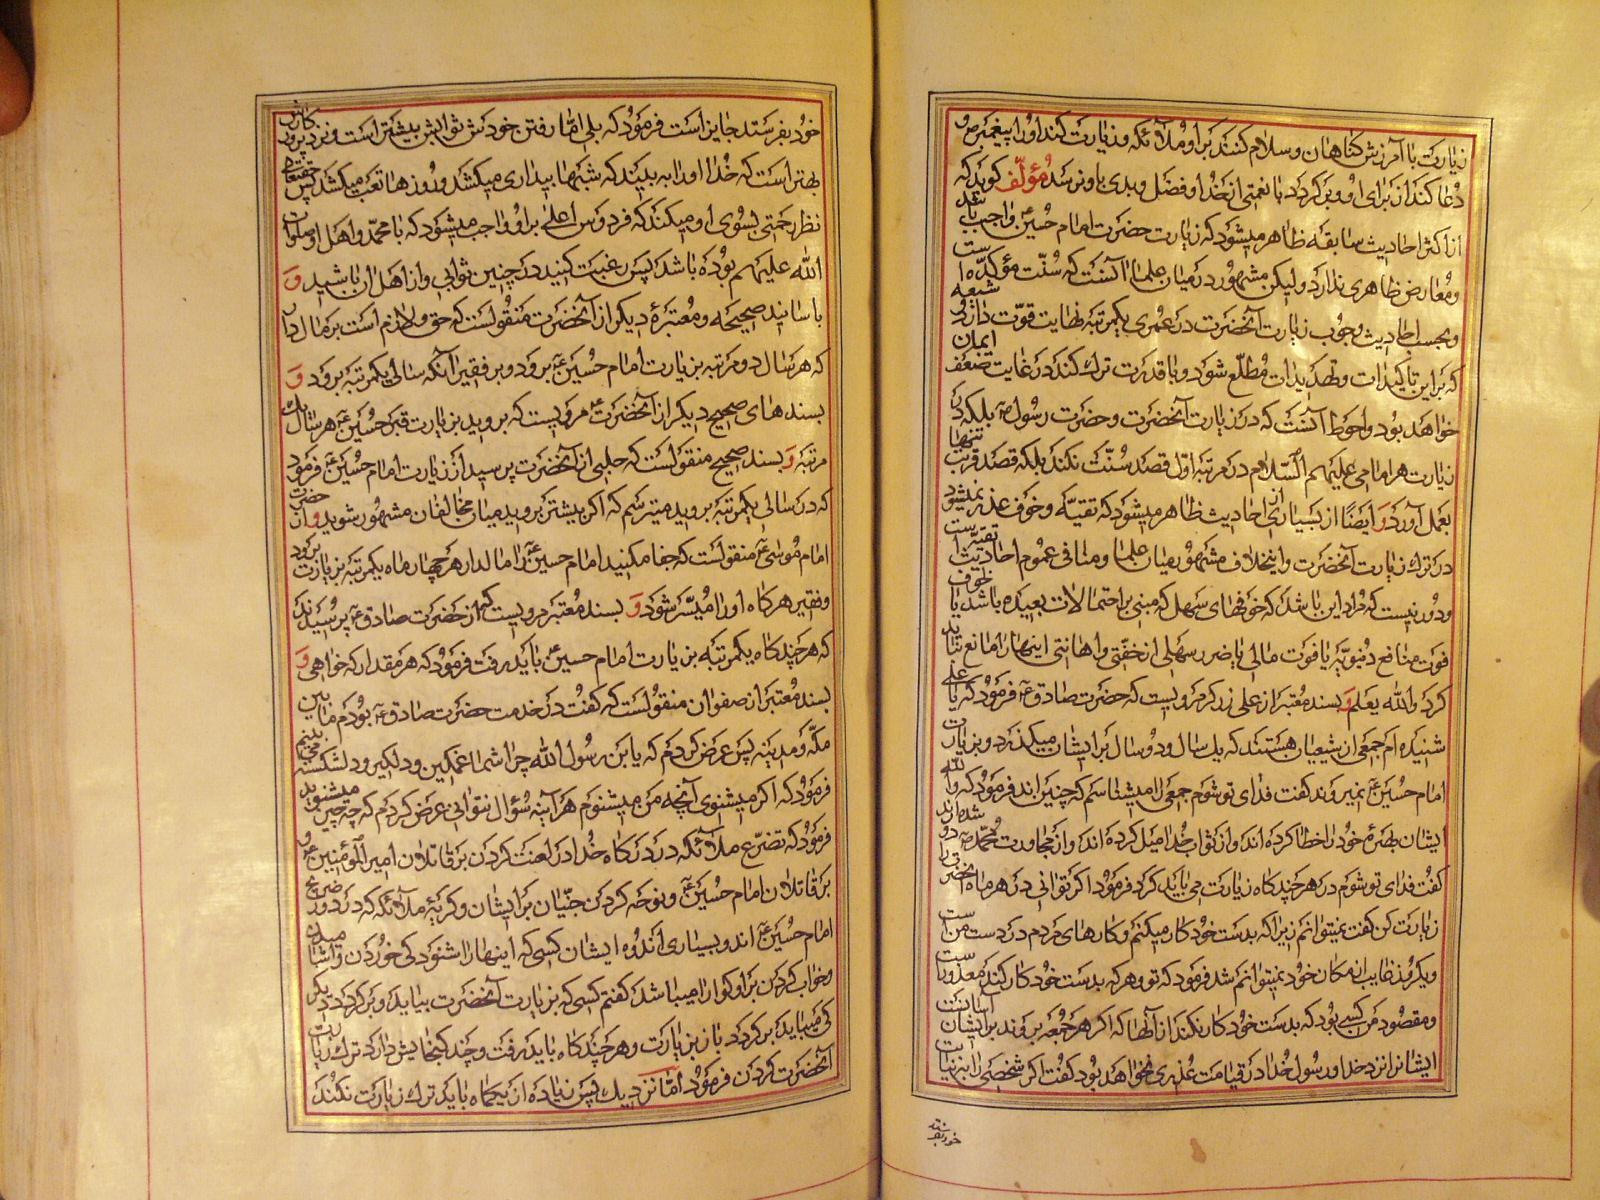 زیارت با آمرزش کناهان و سلام کنند بر او ملائکه و زیارت کنند او را پیغمبر ص و
دعا کنند از برای او و بر کردد با نعمتی از خدا و فضل و بدی باو نرسد مؤلّف کوید که
از اکثر احادیث سابقه ظاهر میشود که زیارت حضرت امام حسین ع واجب باشد
و معارض ظاهری ندارد و لیکن مشهور در میان علما آنست که سنّت مؤکّده است
و بحسب احادیث وجوب زیارت آنحضرت در عمری یکمرتبه نهایت قوّت دارد و شیعه
که بر این تاکیدات و تهدیدات مطّلع شود و با قدرت ترک کند در غایت ضعف ایمان
خواهد بود و احوط آنست که در زیارت آنحضرت و حضرت رسول ص بلکه در
زیارت هر امامی علیهم السّلام در مرتبه اوّل قصد سنّت نکند بلکه قصد قربت تنها
بعمل آورد و ایضًا از بسیاری از احادیث ظاهر میشود که تقیّه و خوف عذر نمیشود
در ترک زیارت آنحضرت و این خلاف مشهور میان علما و منافی عموم احادیث تقیّه است
و دور نیست که مراد این باشد که خوفهای سهل که مبنی بر احتمالات بعیده باشد یا خوف
فوت منافع دنیویّه یا فوت مالی یا ضرر سهلی از خفّتی و اهانتی اینها را مانع نباید
کرد و الله یعلم و بسند معتبر از علی زرکر مرویست که حضرت صادق ع فرمود که یا علی
شنیده ام جمعی از شیعیان هستند که یک سال و دو سال بر ایشان میکذرد و بزیارت
امام حسین ع نمیروند کفت فدای تو شوم جمعی را میشناسم که چنین اند فرمود که والله
ایشان بهرهٔ خود را خطا کرده اند و از ثواب خدا میل کرده اند و از مجاورت محمد ص دور شده اند
کفت فدای تو شوم در هر چند کاه زیارت می باید کرد فرمود اکر توانی در هر ماه آنحضرت را
زیارت کن کفت نمیتوانم زیرا که بدست خود کار میکنم و کارهای مردم در دست من است
و یکروز غایب از مکان خود نمیتوانم شد فرمود که تو و هر که بدست خود کار کند معذور است
و مقصود من کسی بود که بدست خود کار نکند از آنها که اکر هر جمعه بروند بر ایشان آسانست
ایشانرا نزد خدا و رسول خدا در قیامت عذری نخواهد بود کفت اکر شخصی را بزیارت
خود بفرستد
خود بفرستد جایز است فرمود که بلی امّا رفتن خودش ثوابش بیشتر است و نزد پروردکارش
بهتر است که خدا او را به بیند که شبها بیداری میکشد و روزها تعب میکشد پس حقتعالی
نظر رحمتی بسوی او میکند که فردوس اعلی بر او واجب میشود که با محمّد و اهل او صلوات
الله علیهم بوده باشد پس رغبت کنید در چنین ثوابی و از اهل آن باشید و
باسانید صحیحه و معتبرهٔ دیکر از آنحضرت منقولست که حق و لازم است بر مال دار
که هر سال دو مرتبه بزیارت امام حسین ع برود و بر فقیر آنکه سالی یکمرتبه برود و
بسندهای صحیح دیکر از آنحضرت ع مرویست که بروید بزیارت قبر حسین ع هر سال یک
مرتبه و بسند صحیح منقولست که حلبی از آنحضرت پرسید از زیارت امام حسین ع فرمود
که در سالی یکمرتبه بروید میترسم که اکر بیشتر بروید میان مخالفان مشهور شوید و از حضرت
امام موسی ع منقولست که جفا مکنید امام حسین ع را مالدار هر چهار ماه یکمرتبه بزیارت برود
و فقیر هر کاه او را میسّر شود و بسند معتبر مرویست که از حضرت صادق ع پرسیدند
که هر چند کاه یکمرتبه بزیارت امام حسین ع باید رفت فرمود که هر مقدار که خواهی و
بسند معتبر از صفوان منقولست که کفت در خدمت حضرت صادق ع بودم مابین
مکّه و مدینه پس عرض کردم که یا بن رسول الله چرا شما را غمکین و دلکیر و دلشکسته می بینم
فرمود که اکر میشنوی آنچه من میشنوم هر آینه سؤال نتوانی عرض کردم که چه چیز میشنوید
فرمود که تضرّع ملائکه در درکاه خدا در لعنت کردن بر قاتلان امیر المؤمنین ع و
بر قاتلان امام حسین ع و نوحه کردن جنّیان بر ایشان و کریهٔ ملائکه که در دور ضریح
امام حسین ع اند و بسیاری اندوه ایشان کسی که اینها را شنود کی خوردن و آشامیدن
و خواب کردن بر او کوارا میباشد کفتم کسی که بزیارت آنحضرت بیاید و بر کردد دیکر
کی میباید بر کردد باز بزیارت و هر چند کاه باید رفت و چند کنجایش دارد ترک زیارت
آنحضرت کردن فرمود امّا نزدیک پس زیاده از یکماه باید ترک زیارت نکند